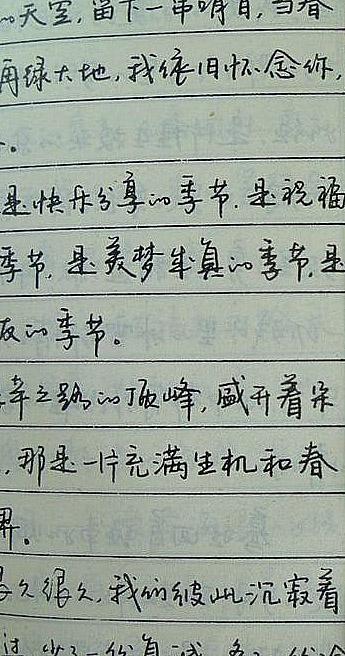 的天空,留下一串明日,当春
再绿大地,我依旧怀念你,
。
是快乐分享的季节.是祝福
季节,是美梦年真的季节,是
友的季节。
幸之路的顶峰,盛开着朵
,那是一片充满生机和春
界。
很久很久,我们彼此沉寂着